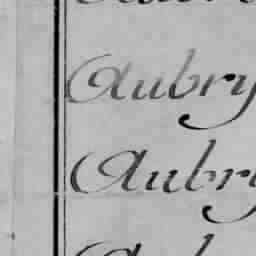 Aubry
Aubry